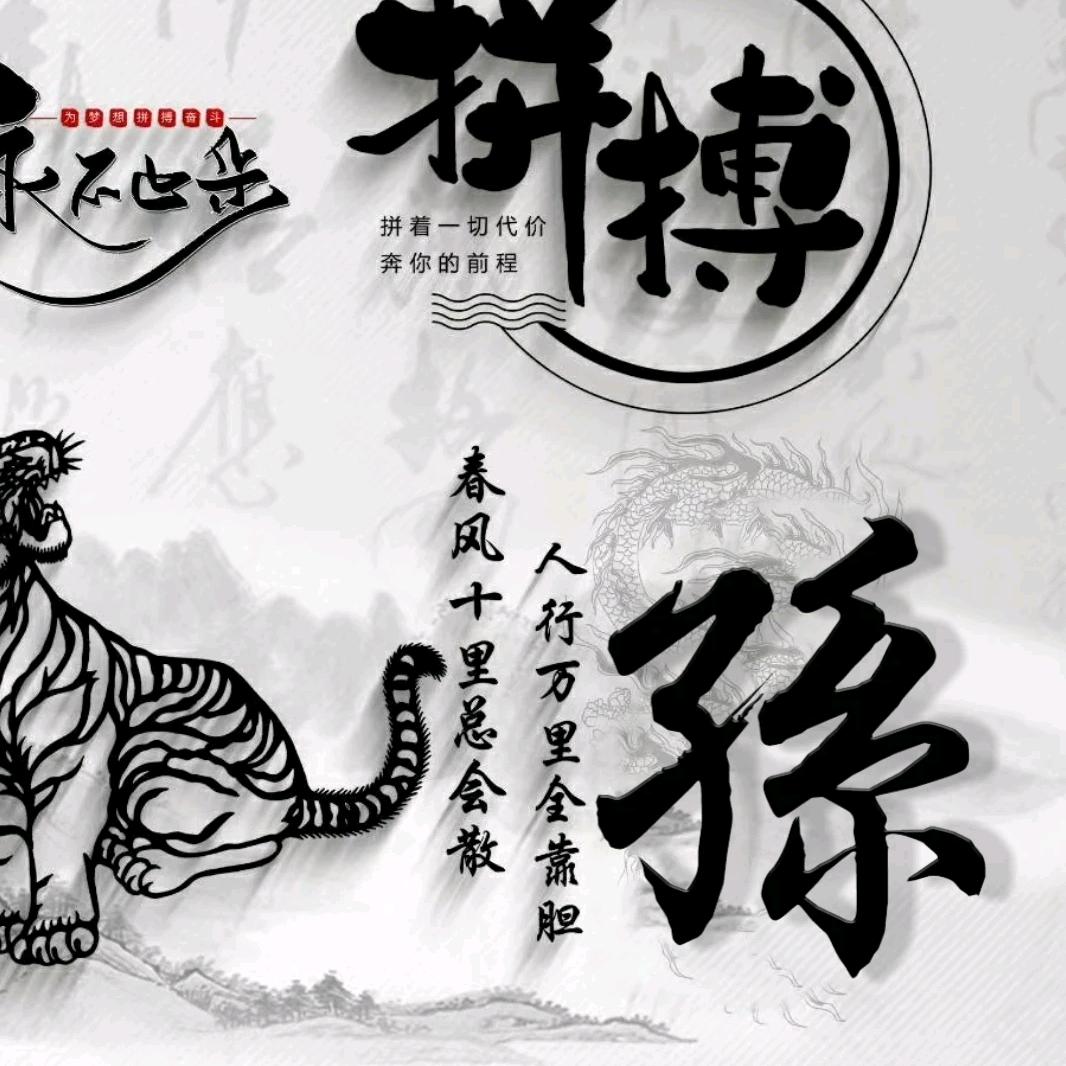 拼搏
为梦想拼搏奋斗
永不止步
拼着一切代价
奔你的前程
人行万里全靠胆
春风十里总会散
孫